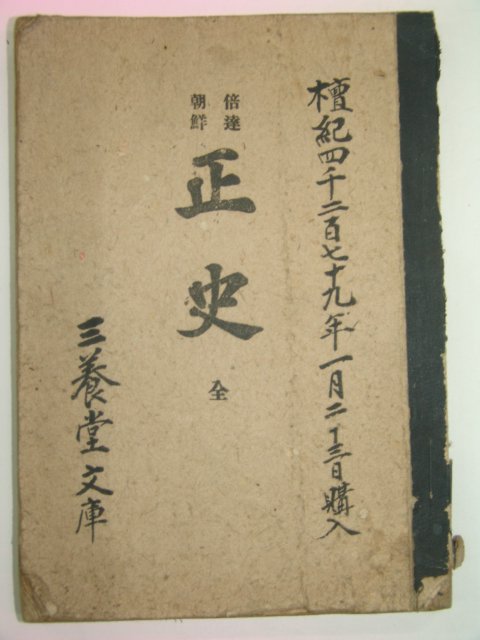 檀紀四千二百七十九年一月二十三日購入
倍達
朝鮮
正史
全
三養堂文庫